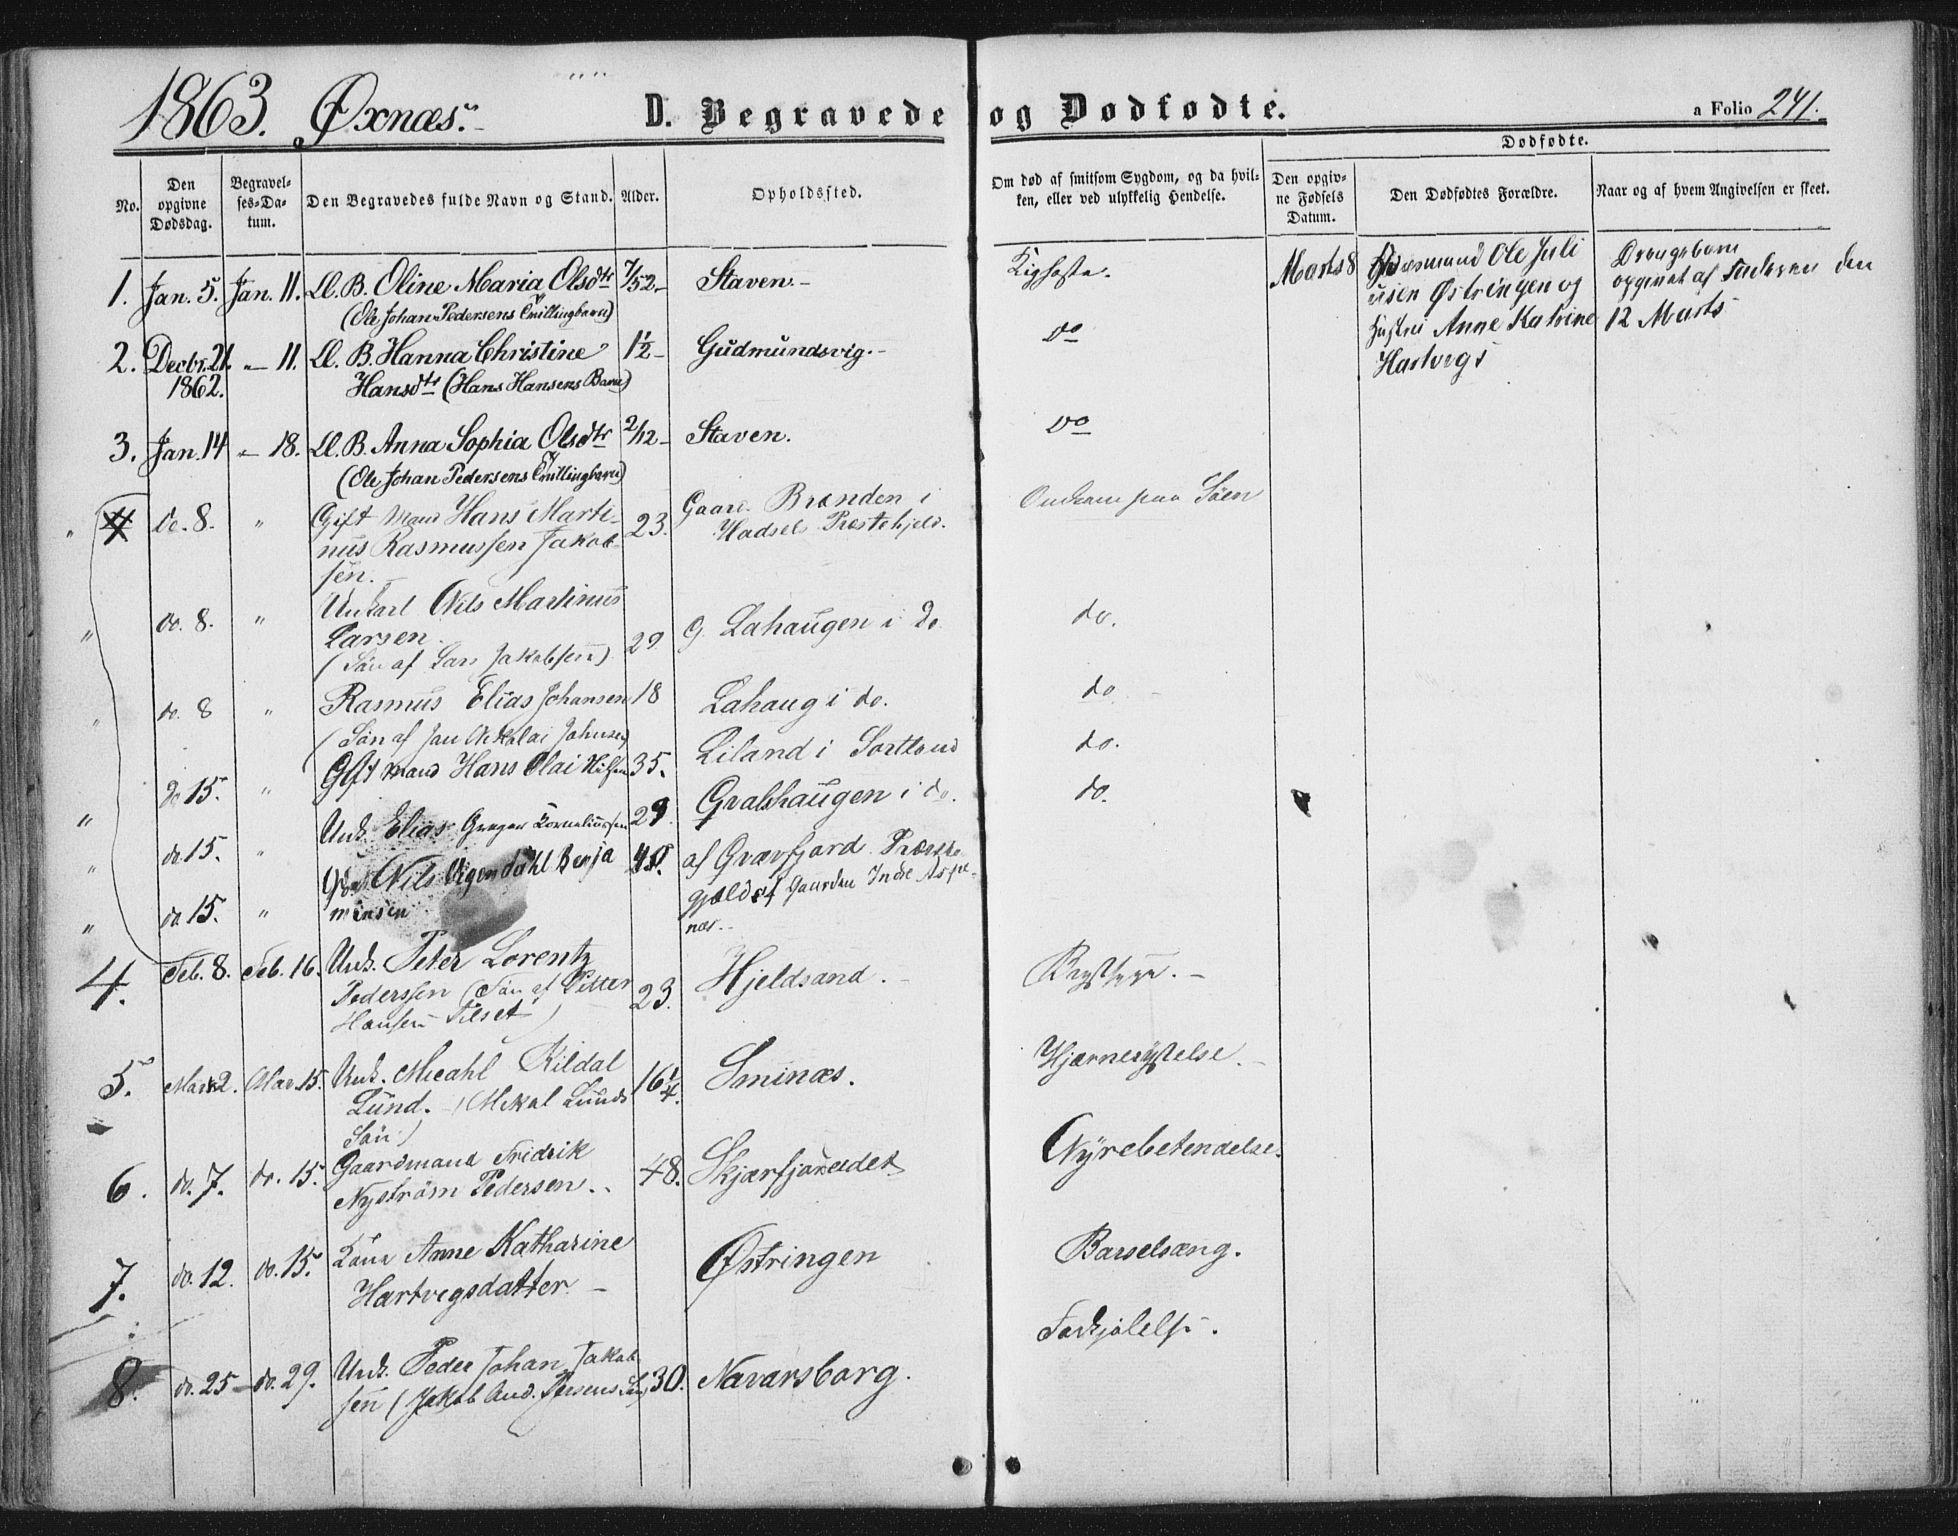 1863. Øxnæs. D. Begravede og Dødfødte. a Folio 241.
Dødfødte.
No. Den opgivne Dødsdag. Begravelses-Datum. Den Begravedes fulde Navn og Stand. Alder. Opholdssted. Om død af smitsom Sygdom, og da hvilken, eller ved ulykkelig Hendelse. Den opgivne Fødsels Datum. Den Dødfødtes Forældre. Naar og af hvem Angivelsen er skeet.
1. Jan. 5. Jan. 11. Ll. B. Oline Maria Olsdtr 7/52 Staven. Kighoste. Marts 8 Ole Juli Drengebarn
(Ole Johan Pedersens Tvillingbarn) usen Østringen og opgivet af Faderen den
Hustru Anne Katrine 12 Marts
2. Decbr. 21. " 11. Ll. B. Hanna Christine 1½ Gudmundsvig. do Hartvigs
1862. Hansdtr (Hans Hansens Barn)
3. Jan. 14 " 18. Ll. B. Anna Sophia Olsdtr 2/12 Staven. do
(Ole Johan Pedersens Tvillingbarn)
" 4 do. 8. " Gift Mand Hans Marti- 23. Gaard. Brænden i paa Søen
nus Rasmussen Jakob- Hadsel Præstegjeld.
sen.
" do. 8. " Unkarl Nils Martinus 29 G. Lahaugen i do do.
Larsen
(Søn af Lars Jakobsen)
" do. 8 " Rasmus Elias Johansen 18 Lahaug i do. do
(Søn af Jan Nikolai Johnsen)
" do 15. " Gift Mand Hans Olai Nilsen 35. Liland i Sortland do.
" do. 15. " Unk. Elias Greger Korneliussen 29 i do. do.
" do 15. " Nils Benja 40. af Præste
minsen gjeld af Gaarden Indre
næs.
4. Feb. 8. Feb. 16. Unk. Peter Lorentz 23. Hjeldsand.
Pederssen (Søn af Petter
Hansen Tilset)
5. Mar. 2. Mar. 15. Unk. Micahl Kildal 16¼. Sminæs. Hjærnerystelse.
Lund. (Mikal Lunds
Søn)
6. do. 7. do. 15. Gaardmand Fridrik 48. Skjærfjordet Nyrebetendelse.
Nyström Pedersen.
7. do. 12. do. 15. Kone Anne Katharine Østringen Barselsæng.
Hartvigsdatter.
8. do. 25 do. 29. Unk. Peder Johan Jakob 30. Navarsborg. Forkjølelse.
sen (Jakob And. Persens Søn)